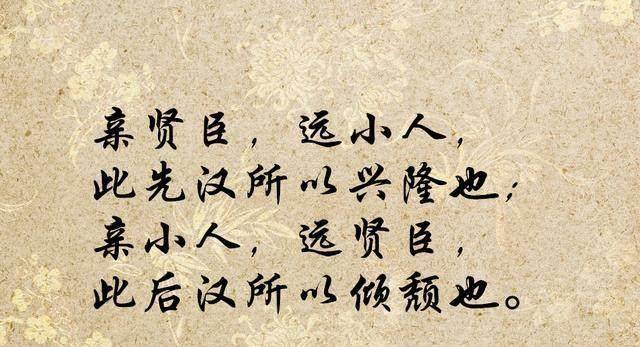 亲贤臣，远小人，
此先汉所以兴隆也；
亲小人，远贤臣，
此后汉所以倾颓也。